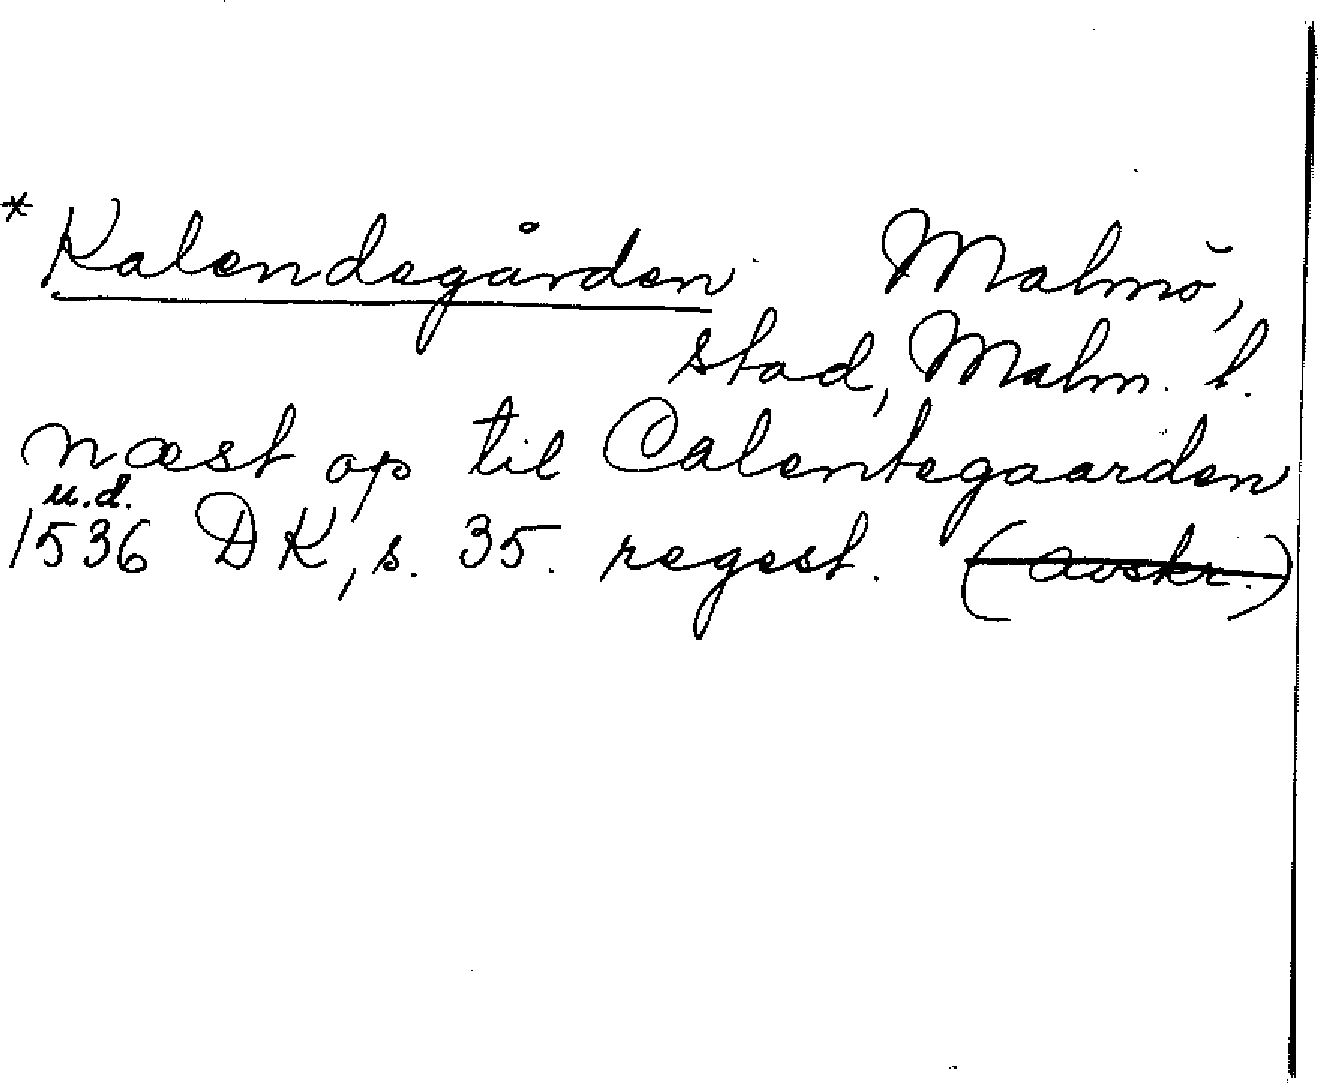 * Kalendegården Malmö,
stad, Malm. l.
næst op til Calentegaarden
u.d.
1536 DK, s. 35. regest. (avskr.)